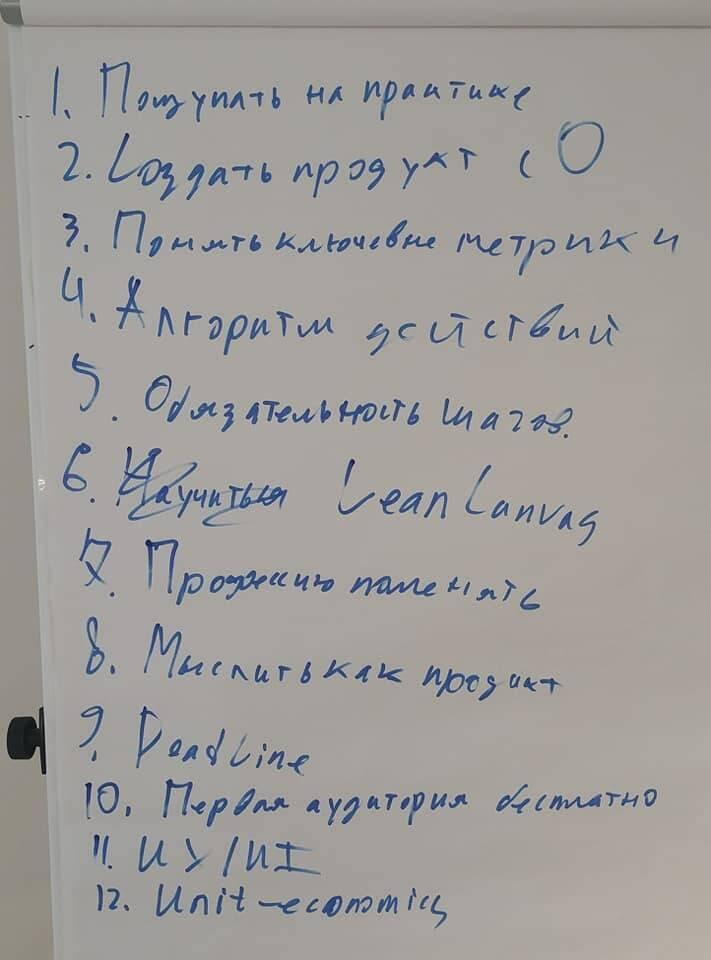 1. Пощупать на практике
2. Создать продукт с О
3. Понять ключевые метрики
4. Алгоритм действий
5. Обязательность шагов.
6. Научиться Lean Canvas
7. Профессию поменять
8. Мыслить как продакт
9. DeadLine
10. Первая аудитория бесплатно
11. UX/UI
12. Unit-economics